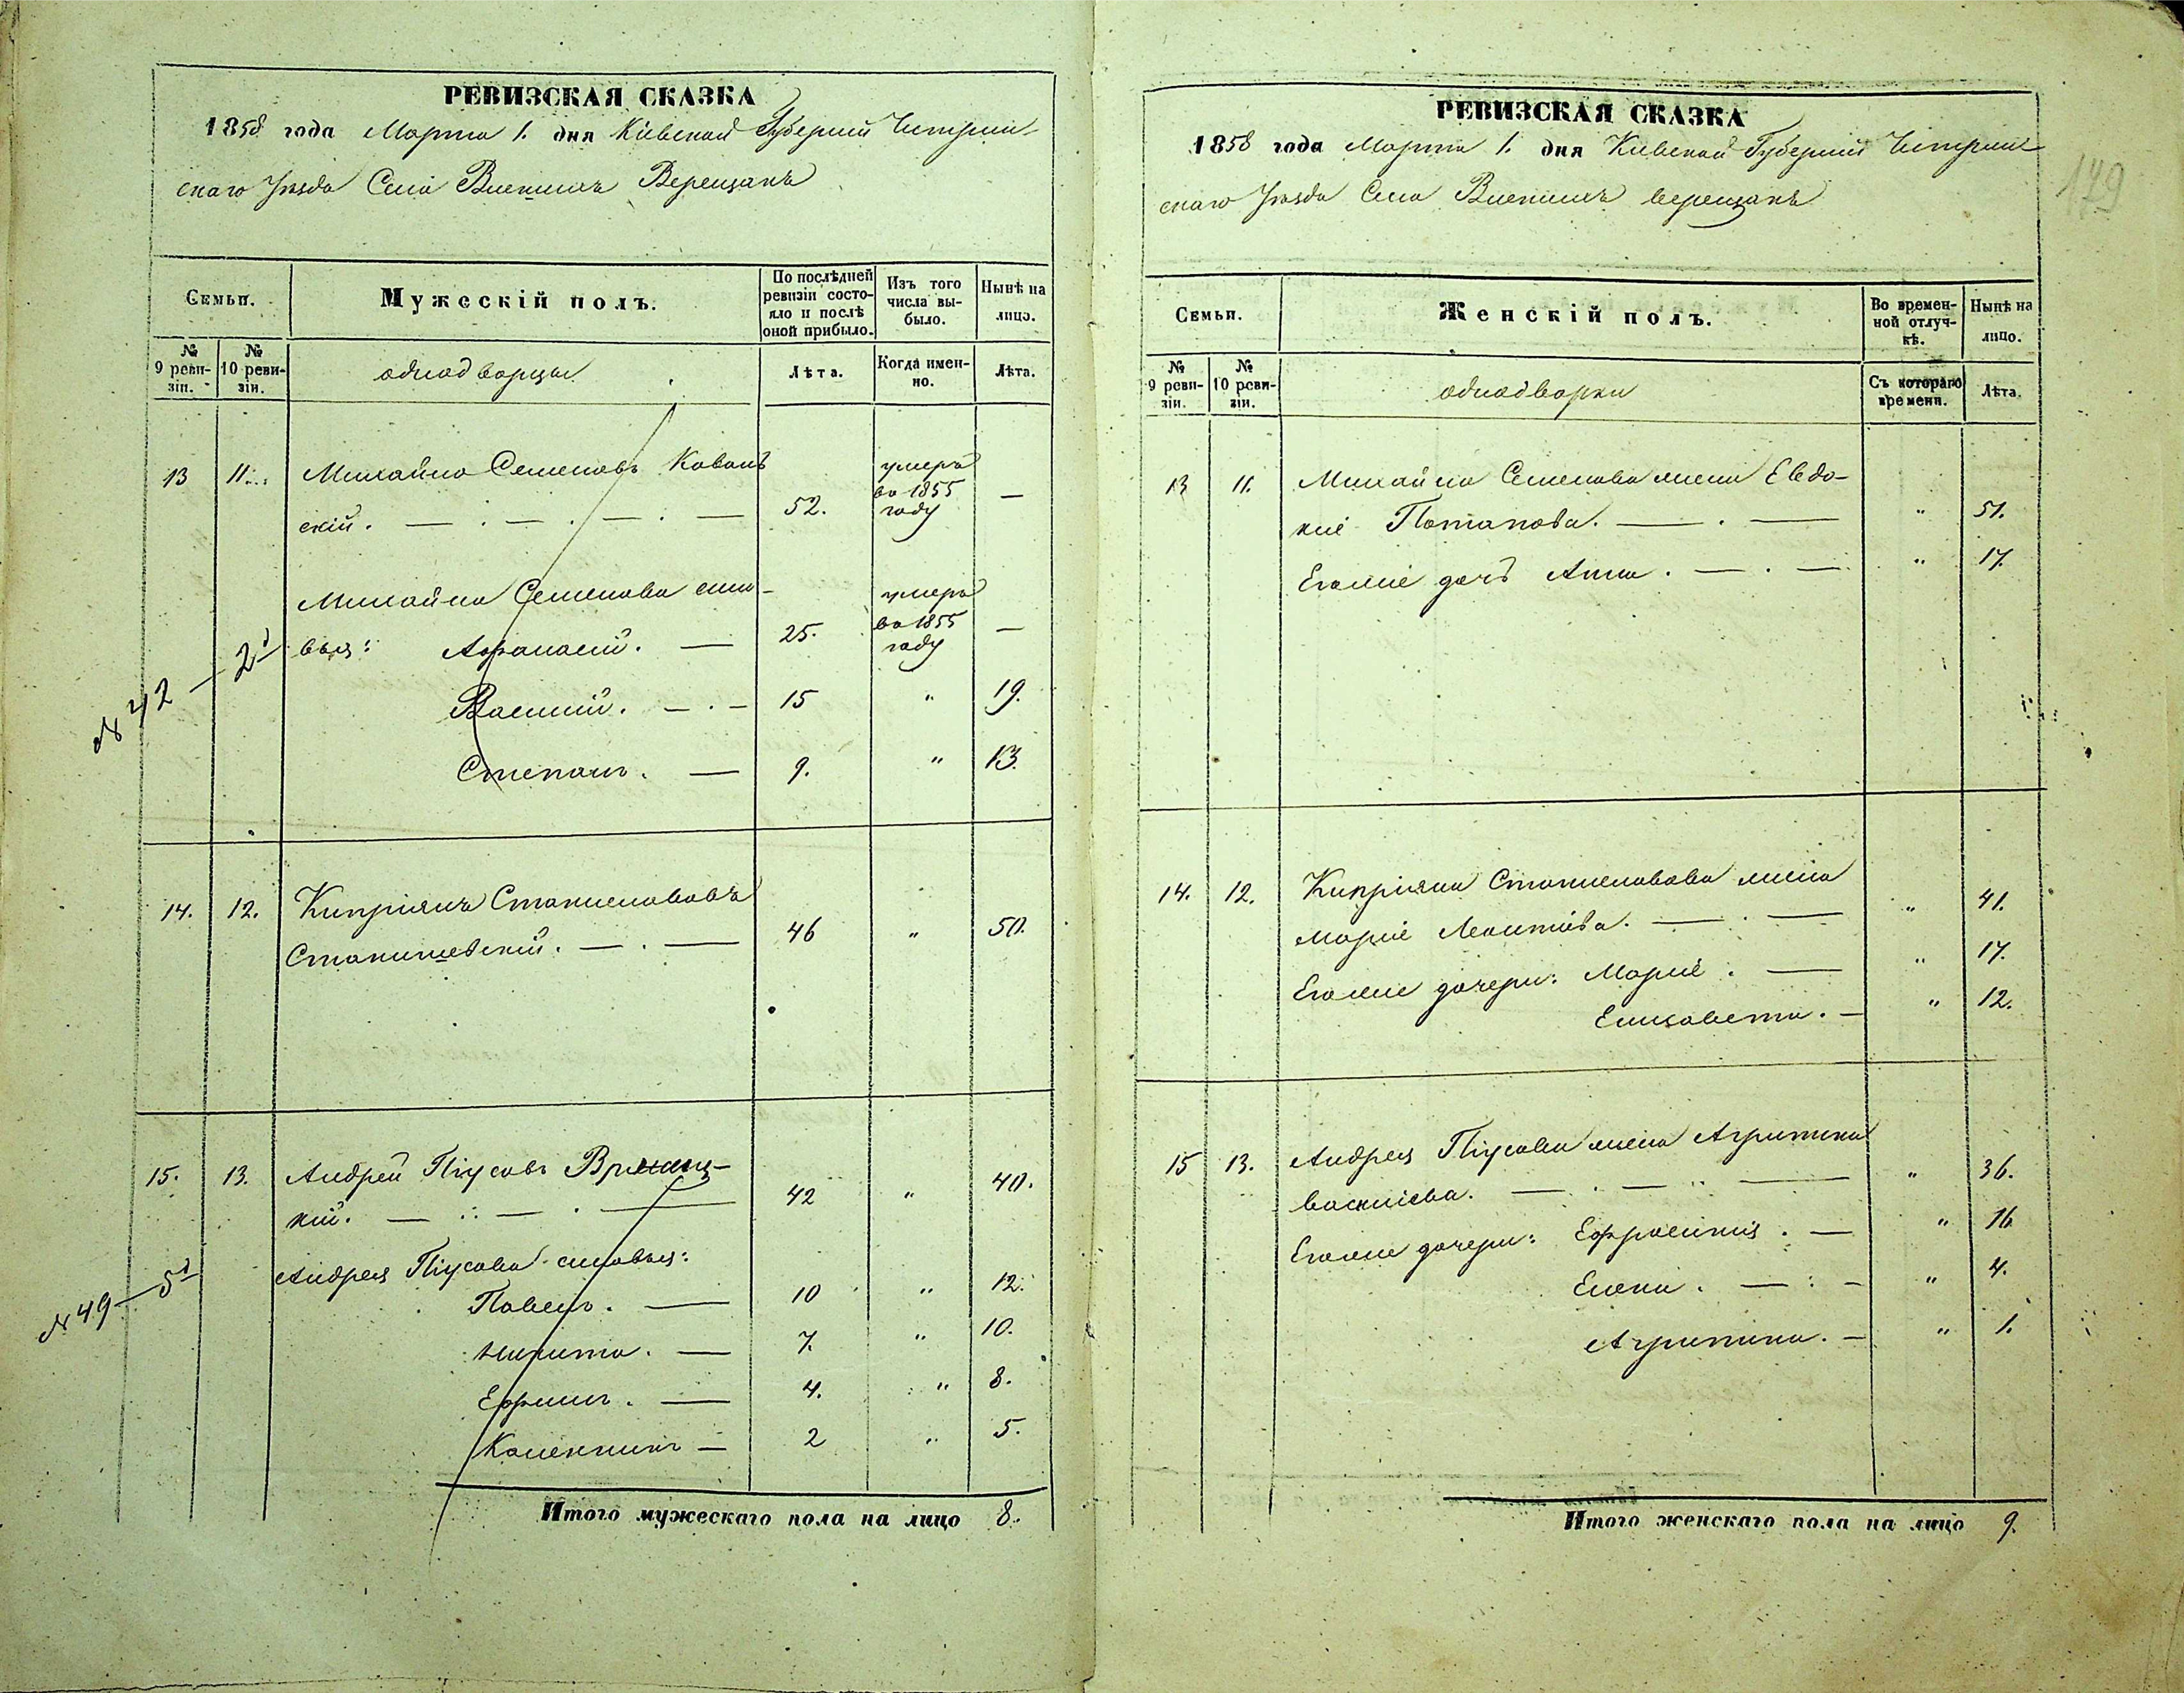 РЕВИЗСКАЯ СКАЗКА
1858 года Марта 1. дня Кіевской Губерніи Чигрин-
скаго Уѣзда Села Верещакъ
Семьи.
Мужескій полъ.
По послѣдней ревизіи состояло и послѣ оной прибыло.
Изъ того числа выбыло.
Нынѣ на лицо.
№ 9 ревизіи.
№ 10 ревизіи.
однодворцы
Лѣта.
Когда именно.
Лѣта.
13 11. Михайло Семеновъ Коваль
скій. 52. умеръ во 1855 году —
Михайла Семенова сыно-
вья: Афанасій. — 25. умеръ во 1855 году —
Василій. — . — 15 " 19.
Степанъ. — 9. " 13.
№ 42 — 2
14. 12. Кипріянъ Станиславовъ
Станишевскій. — . — 46 " 50.
15. 13. Андрей Піусовъ
кій. 42 " 40.
Андрея Піусова сыновья:
Павелъ. — 10 " 12.
Никита. — 7. " 10.
Ефимъ. — 4. " 8.
Каленикъ — 2 " 5.
№ 49 — 5
Итого мужескаго пола на лицо 8.
179
РЕВИЗСКАЯ СКАЗКА
1858 года Марта 1. дня Кіевской Губерніи Чигрин-
скаго Уѣзда Села Верещакъ
Семьи.
Женскій полъ.
Во временной отлучкѣ.
Нынѣ на лицо.
№ 9 ревизіи.
№ 10 ревизіи.
однодворки
Съ котораго времени.
Лѣта.
13 11. Михайла Семенова жена Евдо-
кія Потапова. — . — " 51.
Егоже дочь Анна. — . — " 17.
14. 12. Кипріяна Станиславова жена
Марія Леонтіева. — . — " 41.
Егоже дочери: Марія. — " 17.
Елисавета. — " 12.
15 13. Андрея Піусова жена Агрипина
Василіева. — . — " 36.
Егоже дочери: Ефросинія. — " 16
Елена. — : — " 4.
Агрипина. — " 1.
Итого женскаго пола на лицо 9.